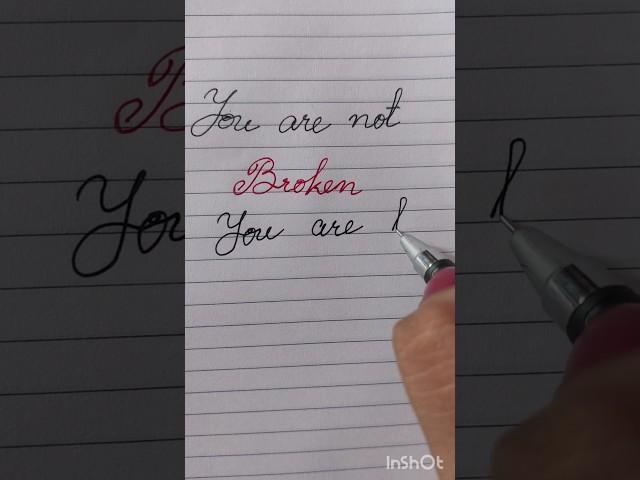 You are not
Broken
You are
InShOt